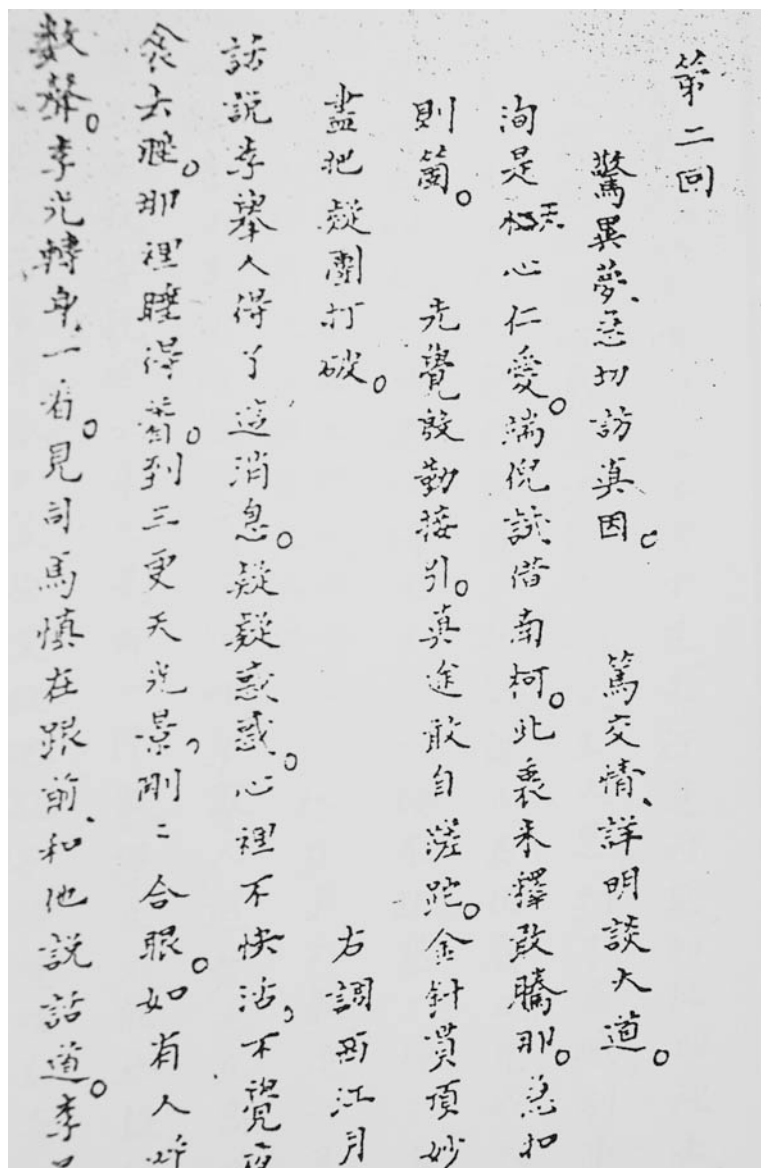 第二回
驚異夢、急切訪真因。 篤交情、詳明談大道。
洵是天心仁愛。端倪試借南柯。此衷未釋敢騰那。急扣
則箇。 先覺殷勤接引。真途敢自蹉跎。金針貫頂妙
盡把疑團打破。 右調西江月
話說李舉人得了這消息。疑疑惑惑。心裡不快活。不覺夜
去睡。那裡睡得着。到三更天光景。剛二合眼。如有人呼
數聲。李光轉身一看。見司馬慎在跟前、和他說話道。李